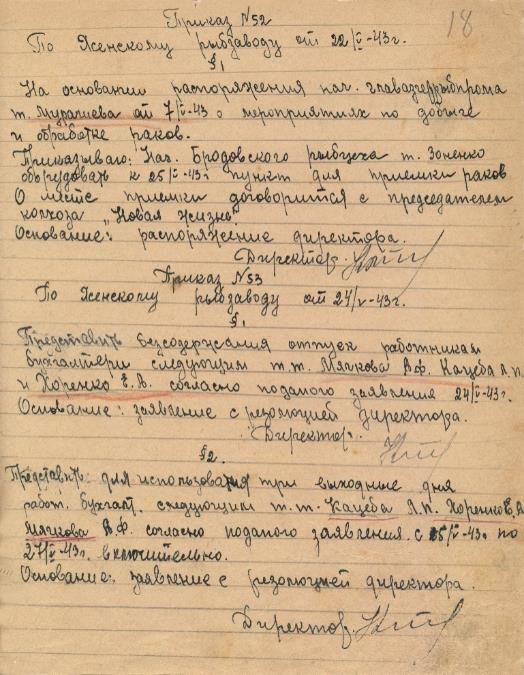 18
Приказ №52
По Ясенскому рыбзаводу от 22/V-43г.
§1
На основании распоряжения нач. главазчеррыбпрома
т. Мурашева от 7/V-43 о мероприятиях по добыче
и обработке раков.
Приказываю: Нач. Бродовского рыбцеха т. Зоненко
оборудовать к 25/V-43г пункт для приемки раков
О месте приемки договорится с председателем
колхоза „Новая жизнь"
Основание: распоряжение директора.
Директор.
Приказ №53
По Ясенскому рыбзаводу от 24/V-43г.
§1
Представить безсодержания отпуск работникам
бухгалтери следующим т.т. Мячкова В.Ф. Кацеба Л.П.
и Хоренко Е.А. согласно поданого заявления 24/V-43г.
Основание: заявление с резолюцией директора.
Директор.
§2.
Представить для использования три выходные дня
работ. бухгалт. следующим т.т. Кацеба Л.П. Хоренко Е.А.
Мячкова В.Ф. согласно поданого заявления с 25/V-43г по
27/V-43г. включительно.
Основание: заявление с резолюцией директора.
Директор.